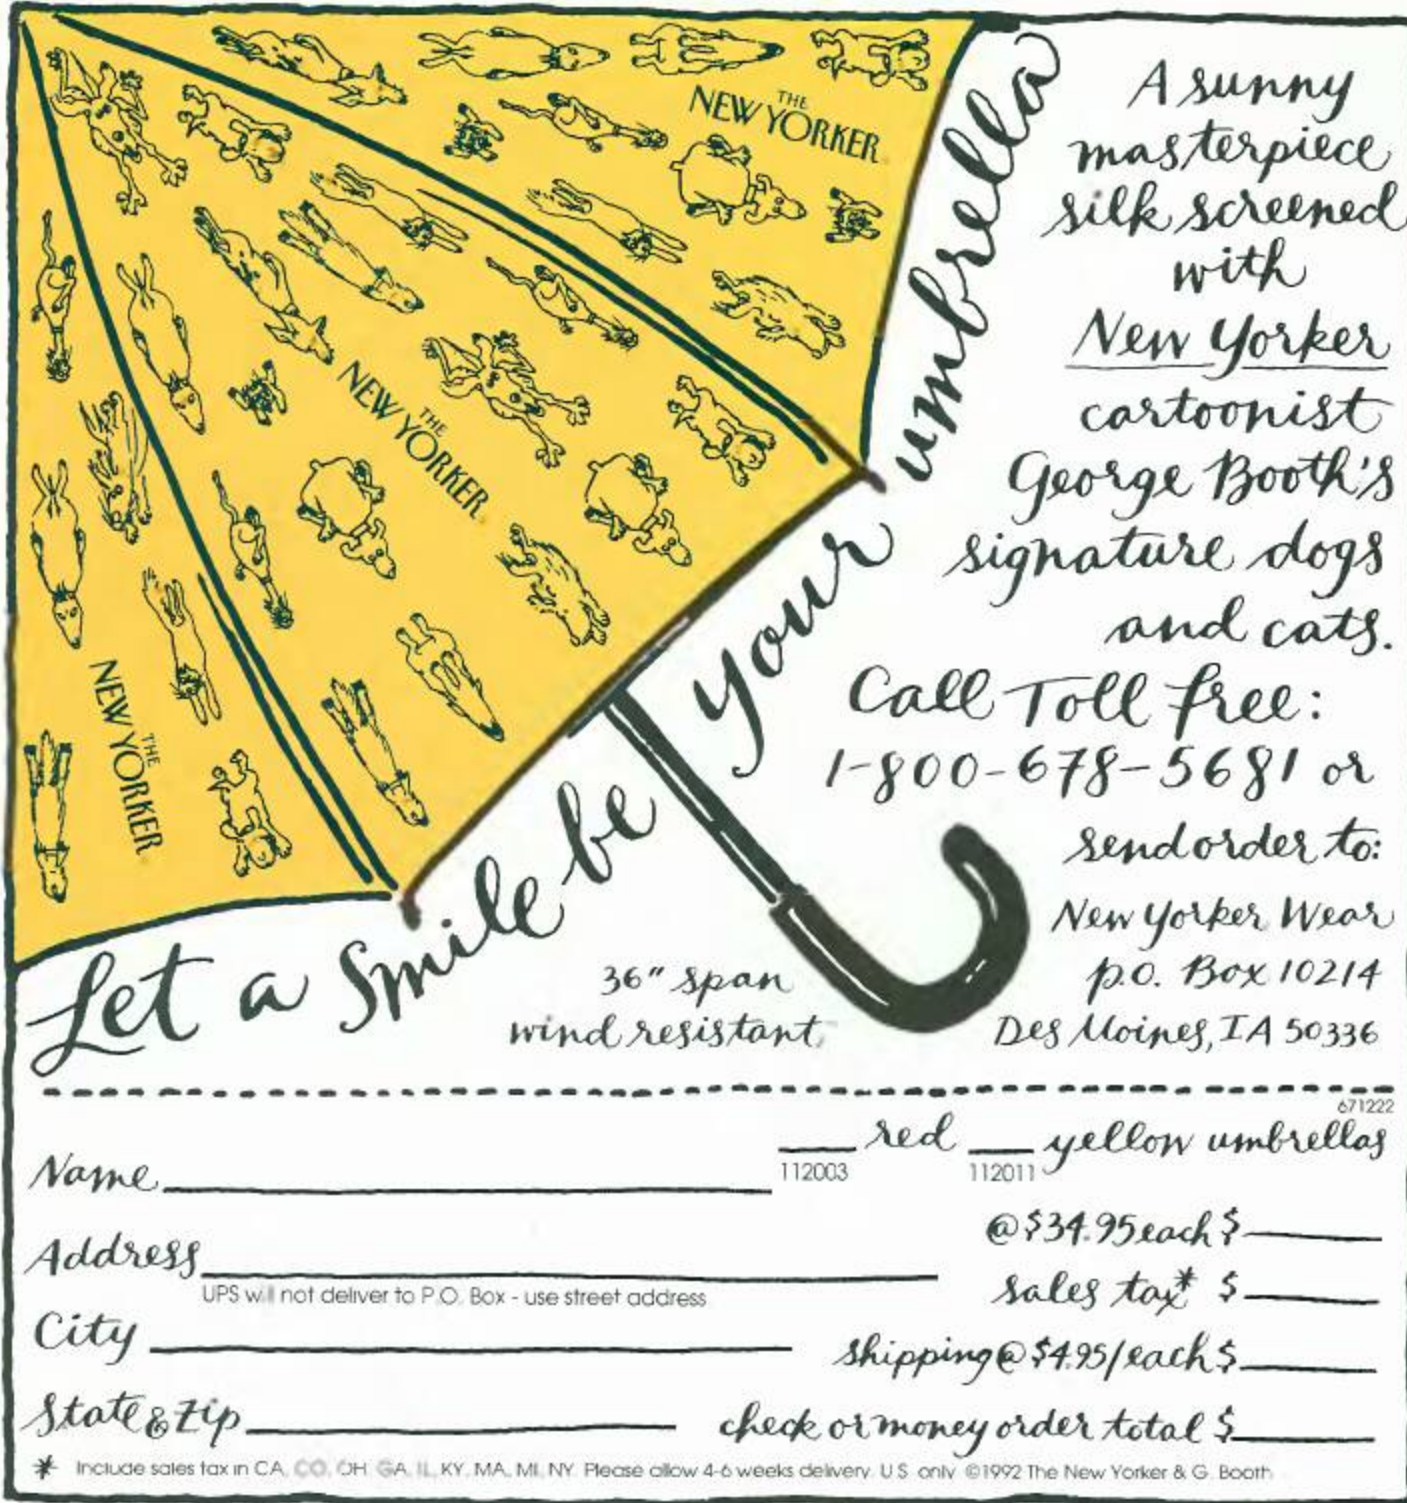 THE
NEW YORKER
THE
NEW YORKER
THE
NEW YORKER
Let a smile be your umbrella
A sunny
masterpiece
silk screened
with
New Yorker
cartoonist
George Booth's
signature dogs
and cats.
Call Toll free:
1-800-678-5681 or
send order to:
New Yorker Wear
P.O. Box 10214
Des Moines, IA 50336
36" span
wind resistant
671222
___ red ___ yellow umbrellas
112003 112011
Name
@ $34.95 each $
Address
UPS will not deliver to P.O. Box - use street address
sales tax* $
City
shipping @ $4.95/each $
State & Zip
check or money order total $
* Include sales tax in CA, CO, OH, GA, IL, KY, MA, MI, NY. Please allow 4-6 weeks delivery. U.S. only ©1992 The New Yorker & G. Booth